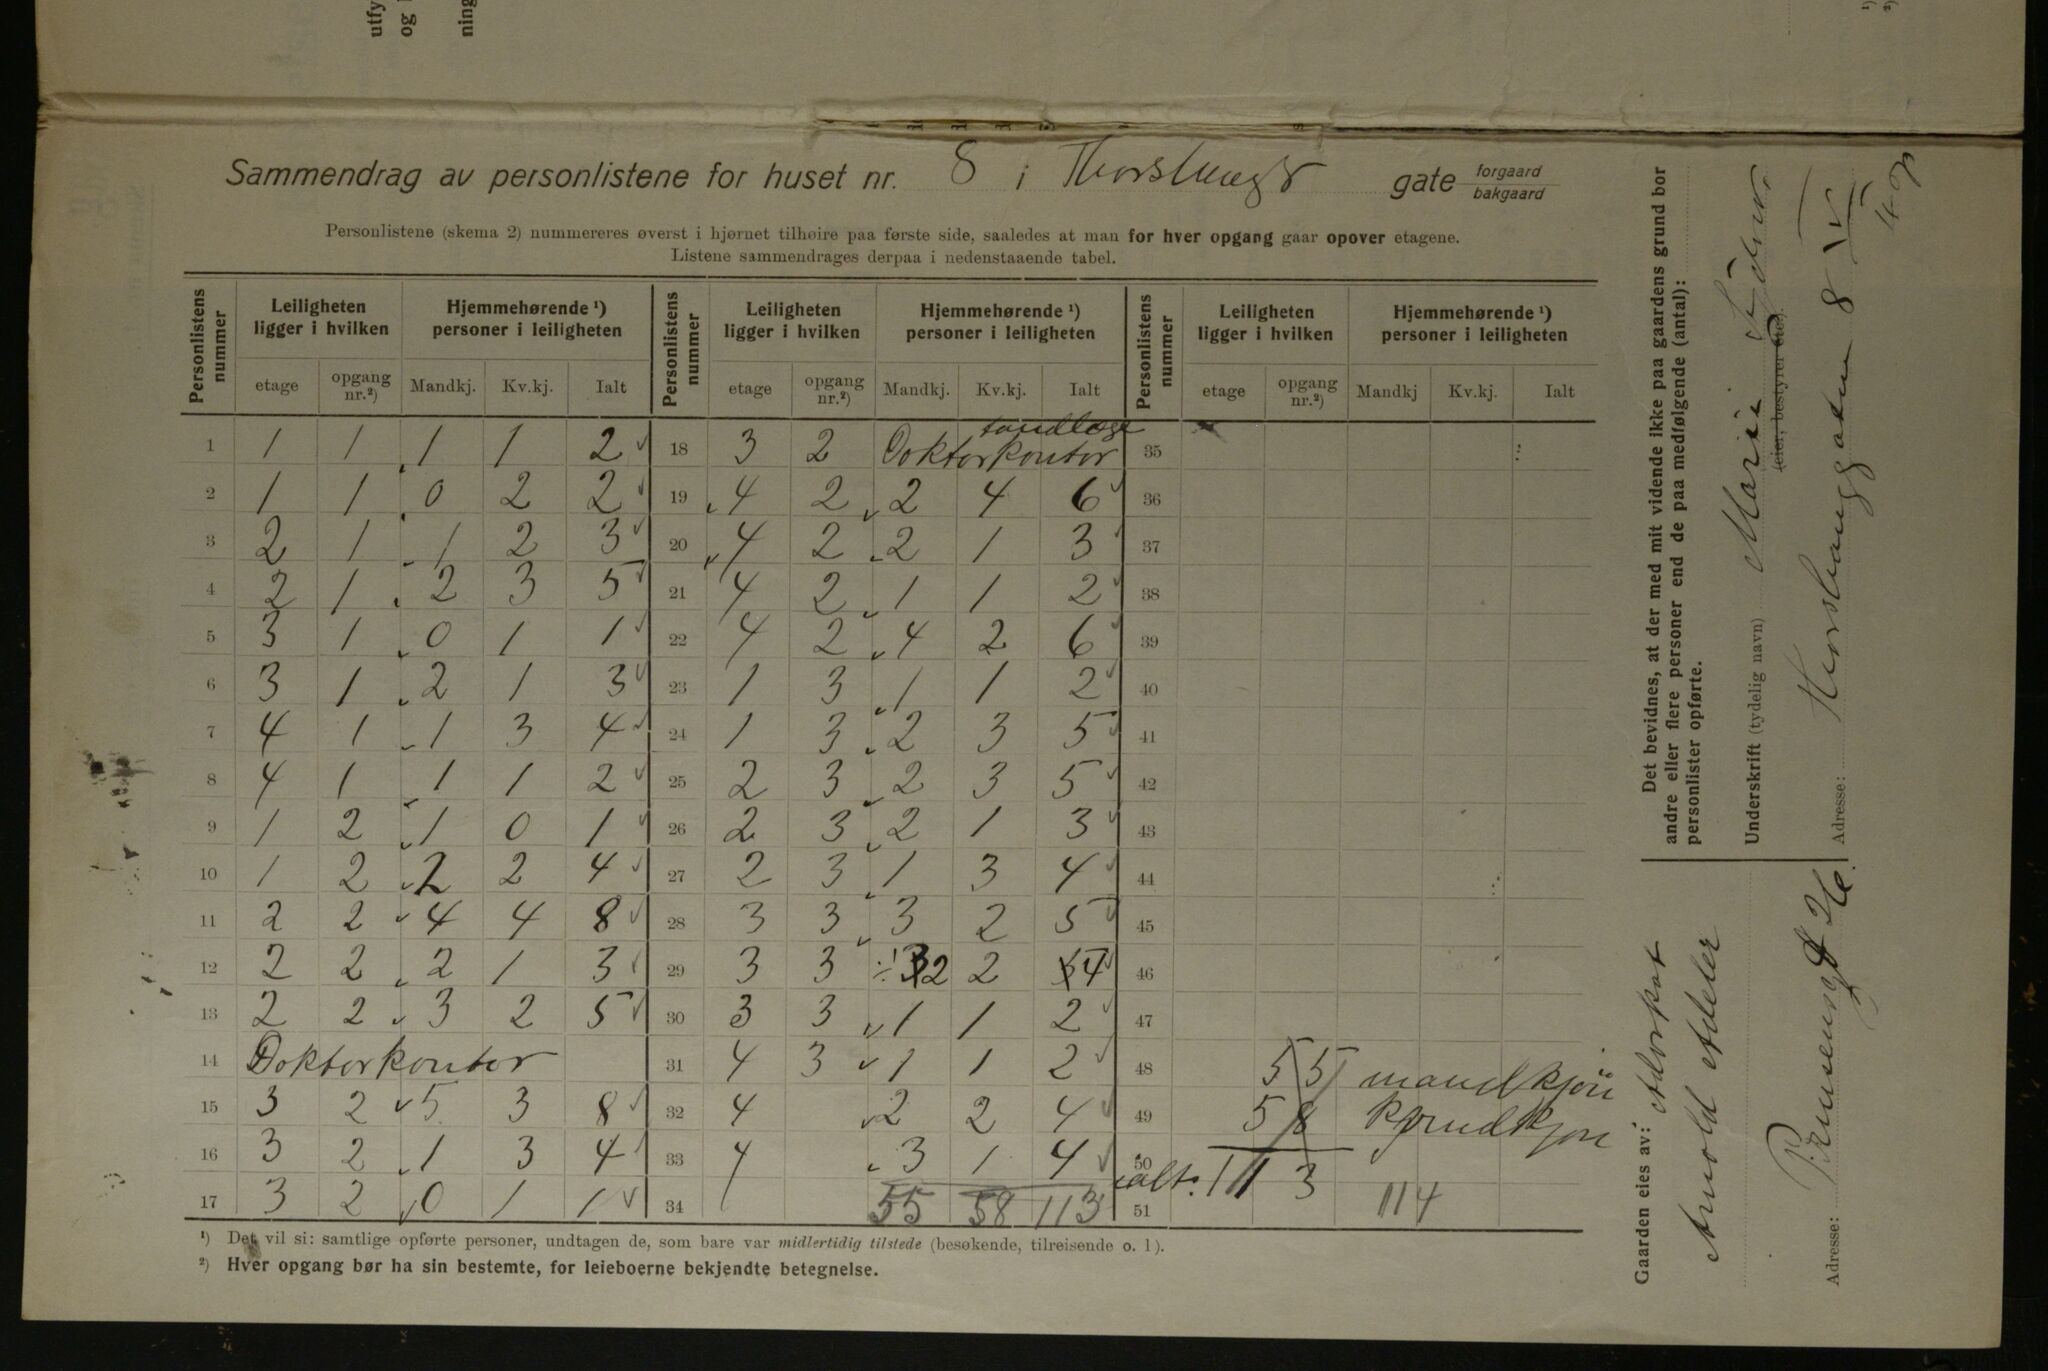 Sammendrag av personlistene for huset nr. 8 i Thorshaugs gate forgaard bakgaard
Personlistene (skema 2) nummereres øverst i hjørnet tilhøire paa første side, saaledes at man for hver opgang gaar opover etagene.
Listene sammendrages derpaa i nedenstaaende tabel.
Personlistens nummer | Leiligheten ligger i hvilken | Hjemmehørende ¹) personer i leiligheten | Personlistens nummer | Leiligheten ligger i hvilken | Hjemmehørende ¹) personer i leiligheten | Personlistens nummer | Leiligheten ligger i hvilken | Hjemmehørende ¹) personer i leiligheten
etage | opgang nr.²) | Mandkj. | Kv.kj. | Ialt | etage | opgang nr.²) | Mandkj. | Kv.kj. | Ialt | etage | opgang nr.²) | Mandkj | Kv.kj. | Ialt
1 | 1 | 1 | 1 | 1 | 2 | 18 | 3 | 2 | tandlæge Doktorkontor | 35
2 | 1 | 1 | 0 | 2 | 2 | 19 | 4 | 2 | 2 | 4 | 6 | 36
3 | 2 | 1 | 1 | 2 | 3 | 20 | 4 | 2 | 2 | 1 | 3 | 37
4 | 2 | 1 | 2 | 3 | 5 | 21 | 4 | 2 | 1 | 1 | 2 | 38
5 | 3 | 1 | 0 | 1 | 1 | 22 | 4 | 2 | 4 | 2 | 6 | 39
6 | 3 | 1 | 2 | 1 | 3 | 23 | 1 | 3 | 1 | 1 | 2 | 40
7 | 4 | 1 | 1 | 3 | 4 | 24 | 1 | 3 | 2 | 3 | 5 | 41
8 | 4 | 1 | 1 | 1 | 2 | 25 | 2 | 3 | 2 | 3 | 5 | 42
9 | 1 | 2 | 1 | 0 | 1 | 26 | 2 | 3 | 2 | 1 | 3 | 43
10 | 1 | 2 | 2 | 2 | 4 | 27 | 2 | 3 | 1 | 3 | 4 | 44
11 | 2 | 2 | 4 | 4 | 8 | 28 | 3 | 3 | 3 | 2 | 5 | 45
12 | 2 | 2 | 2 | 1 | 3 | 29 | 3 | 3 | 2 | 2 | 4 | 46
13 | 2 | 2 | 3 | 2 | 5 | 30 | 3 | 3 | 1 | 1 | 2 | 47
14 | Doktorkontor | 31 | 4 | 3 | 1 | 1 | 2 | 48 | 55 mandkjön
15 | 3 | 2 | 5 | 3 | 8 | 32 | 4 | 2 | 2 | 4 | 49 | 58
16 | 3 | 2 | 1 | 3 | 4 | 33 | 4 | 3 | 1 | 4 | 50 | ialt: 113
17 | 3 | 2 | 0 | 1 | 1 | 34 | 55 | 58 | 113 | 51 | 114
¹) Det vil si: samtlige opførte personer, undtagen de, som bare var midlertidig tilstede (besøkende, tilreisende o. l).
²) Hver opgang bør ha sin bestemte, for leieboerne bekjendte betegnelse.
Det bevidnes, at der med mit vidende ikke paa gaardens grund bor
andre eller flere personer end de paa medfølgende (antal):
personlister opførte.
Underskrift (tydelig navn) Marie
(eier, bestyrer etc.)
Adresse: Thorshauggaten 8 IV
Gaarden eies av: Advokat
Arnold
Adresse:
utfy
og
ning